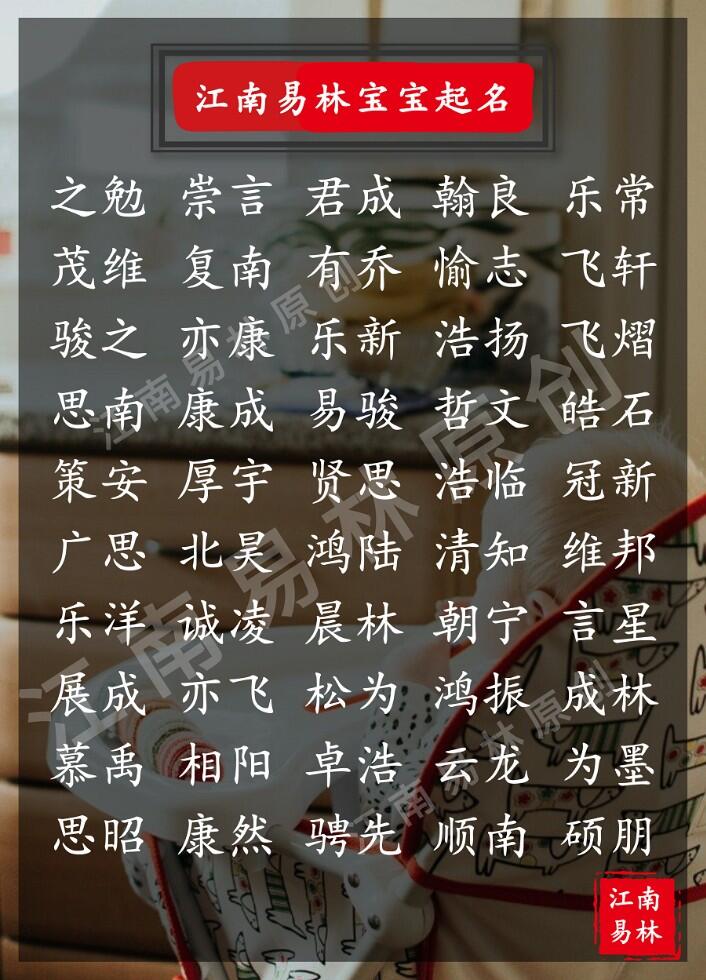 江南易林宝宝起名
之勉 崇言 君成 翰良 乐常
茂维 复南 有乔 愉志 飞轩
骏之 亦康 乐新 浩扬 飞熠
思南 康成 易骏 哲文 皓石
策安 厚宇 贤思 浩临 冠新
广思 北昊 鸿陆 清知 维邦
乐洋 诚凌 晨林 朝宁 言星
展成 亦飞 松为 鸿振 成林
慕禹 相阳 卓浩 云龙 为墨
思昭 康然 骋先 顺南 硕朋
江南易林原创
江南易林原创
江南易林原创
江南
易林